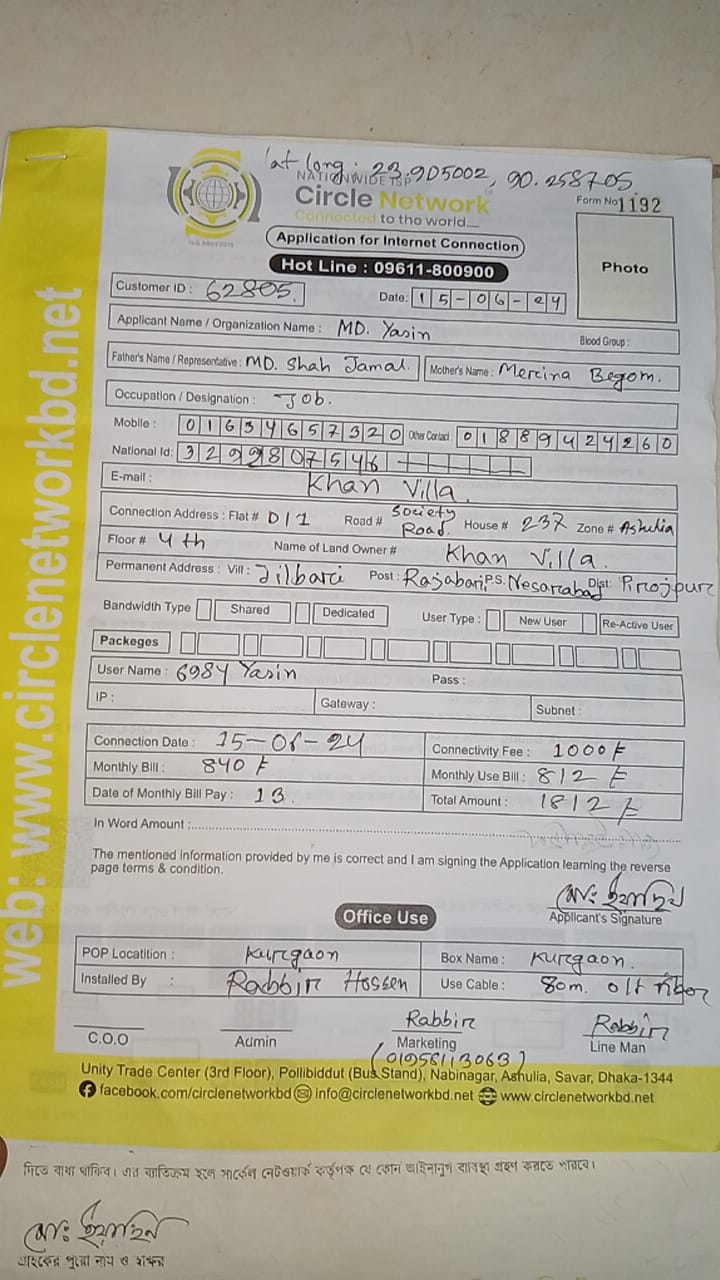 lat long : 23.905002, 90.258705.
NATIONWIDE ISP
Circle Network
Connected to the world....
Form No 1192
Application for Internet Connection
Hot Line : 09611-800900
Photo
Customer ID : 62805.
Date: 15-06-24
Applicant Name / Organization Name : MD. Yasin
Blood Group :
Father's Name / Representative : MD. Shah Jamal.
Mother's Name : Mercina Begom.
Occupation / Designation : Job.
Mobile : 01634657320 Other Contact : 01889424260
National Id: 3299807546
E-mail : Khan Villa.
Connection Address : Flat# D/1 Road # Society Road. House # 237 Zone # Ashulia
Floor # 4th Name of Land Owner # Khan Villa.
Permanent Address : Vill: Jilbari Post : Rajabari P.S. Nesarabad Dist: Pirojpur
Bandwidth Type Shared Dedicated User Type : New User Re-Active User
Packeges
User Name : 6984 Yasin Pass :
IP : Gateway : Subnet :
Connection Date : 15-06-24 Connectivity Fee : 1000 ৳
Monthly Bill : 840 ৳ Monthly Use Bill : 812 ৳
Date of Monthly Bill Pay : 13. Total Amount : 1812 ৳
In Word Amount :
The mentioned information provided by me is correct and I am signing the Application learning the reverse
page terms & condition.
মোঃ ইয়াছিন
Applicant's Signature
Office Use
POP Locatition : Kurgaon Box Name : Kurgaon.
Installed By : Rabbir Hossen Use Cable : 80m. olt
Rabbir Rabbir
C.O.O Admin Marketing Line Man
(01958113063)
Unity Trade Center (3rd Floor), Pollibiddut (Bus Stand), Nabinagar, Ashulia, Savar, Dhaka-1344
facebook.com/circlenetworkbd info@circlenetworkbd.net www.circlenetworkbd.net
web: www.circlenetworkbd.net
দিতে বাধ্য থাকিব। এর ব্যতিক্রম হলে সার্কেল নেটওয়ার্ক কর্তৃপক্ষ যে কোন আইনানুগ ব্যবস্থা গ্রহণ করতে পারবে।
মোঃ ইয়াছিন
গ্রাহকের পুরো নাম ও স্বাক্ষর